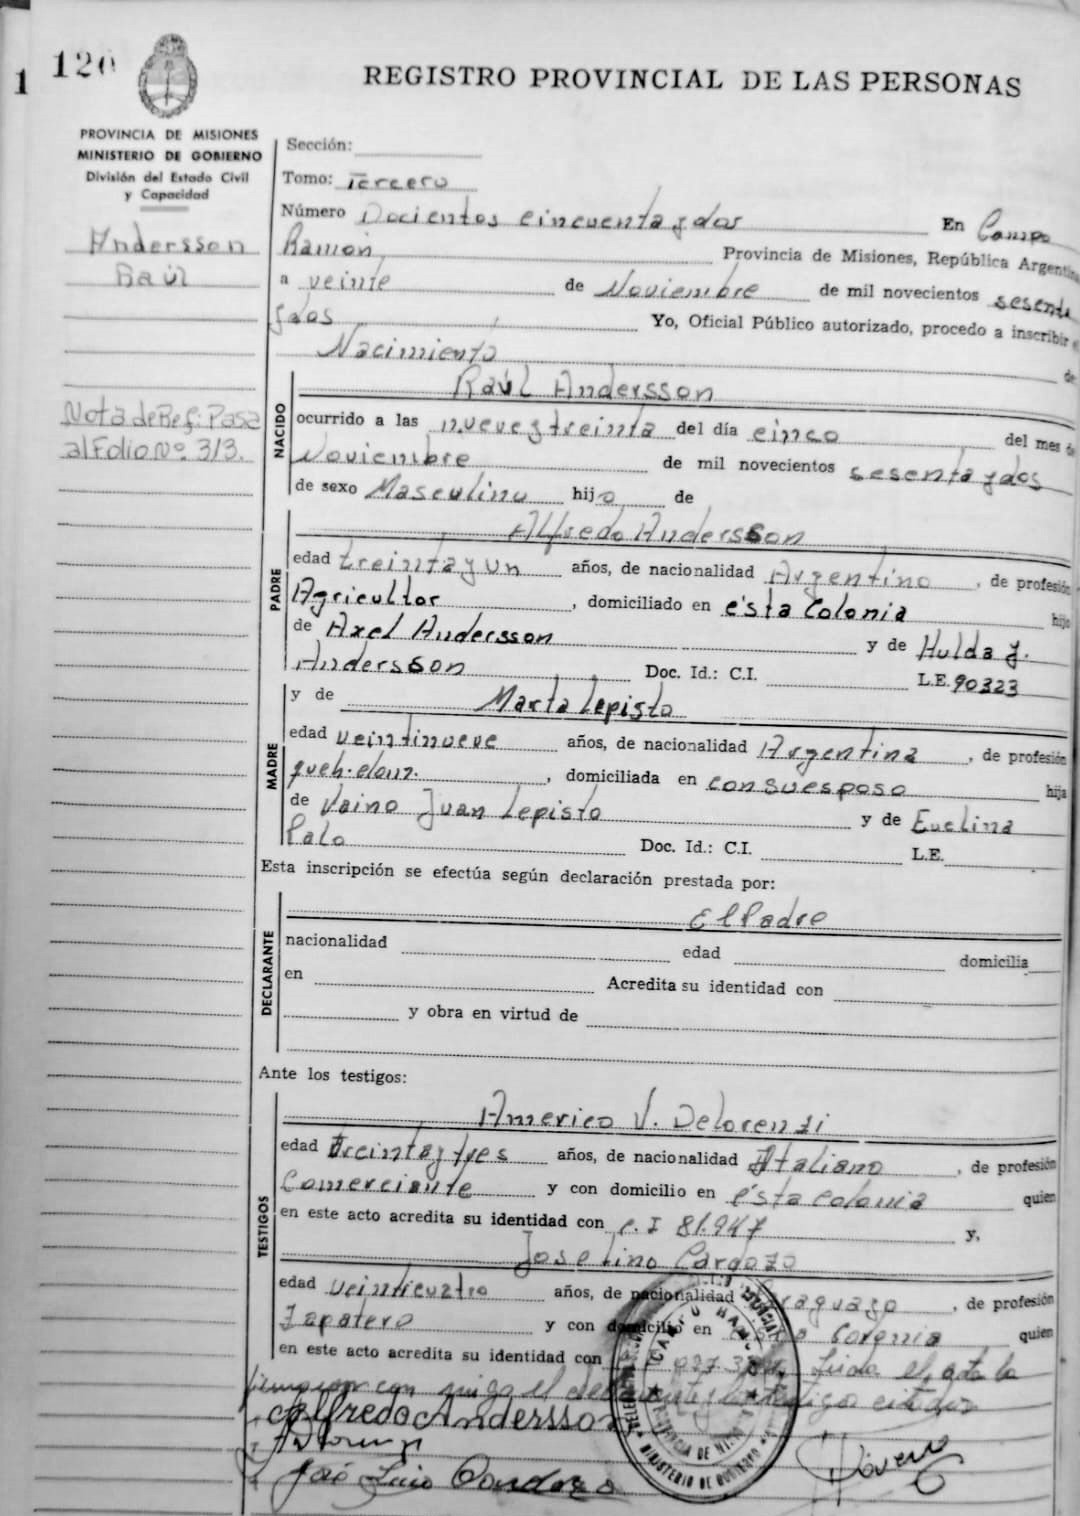 1
120
REGISTRO PROVINCIAL DE LAS PERSONAS
PROVINCIA DE MISIONES
MINISTERIO DE GOBIERNO
División del Estado Civil
y Capacidad
Andersson
Raúl
Nota de Ref: Pasa
al Folio Nº 313.
Sección:
Tomo: Tercero
Número Docientos cincuenta y dos En Campo
Ramón Provincia de Misiones, República Argentina
a veinte de Noviembre de mil novecientos sesenta
y dos Yo, Oficial Público autorizado, procedo a inscribir el
Nacimiento de
NACIDO
Raúl Andersson
ocurrido a las nueve y treinta del día cinco del mes de
Noviembre de mil novecientos sesenta y dos
de sexo Masculino hijo de
PADRE
Alfredo Andersson
edad treinta y un años, de nacionalidad Argentino, de profesión
Agricultor, domiciliado en ésta Colonia hijo
de Axel Andersson y de Hulda J.
Andersson Doc. Id.: C.I. L.E. 90323
MADRE
y de Marta Lepisto
edad veintinueve años, de nacionalidad Argentina, de profesión
queh. dom., domiciliada en con su esposo hija
de Vaino Juan Lepisto y de Evelina
Palo Doc. Id.: C.I. L.E.
Esta inscripción se efectúa según declaración prestada por:
DECLARANTE
El Padre
nacionalidad edad domicilia
en Acredita su identidad con
y obra en virtud de
Ante los testigos:
TESTIGOS
Americo V. Delorenzi
edad treinta y tres años, de nacionalidad Italiano, de profesión
Comerciante y con domicilio en ésta colonia quien
en este acto acredita su identidad con c. I 81.947 y,
Jose Lino Cardozo
edad veinticuatro años, de nacionalidad Paraguayo, de profesión
Zapatero y con domicilio en Colonia quien
en este acto acredita su identidad con el acta la
el testigo citados
Alfredo Andersson
MINISTERIO DE GOBIERNO